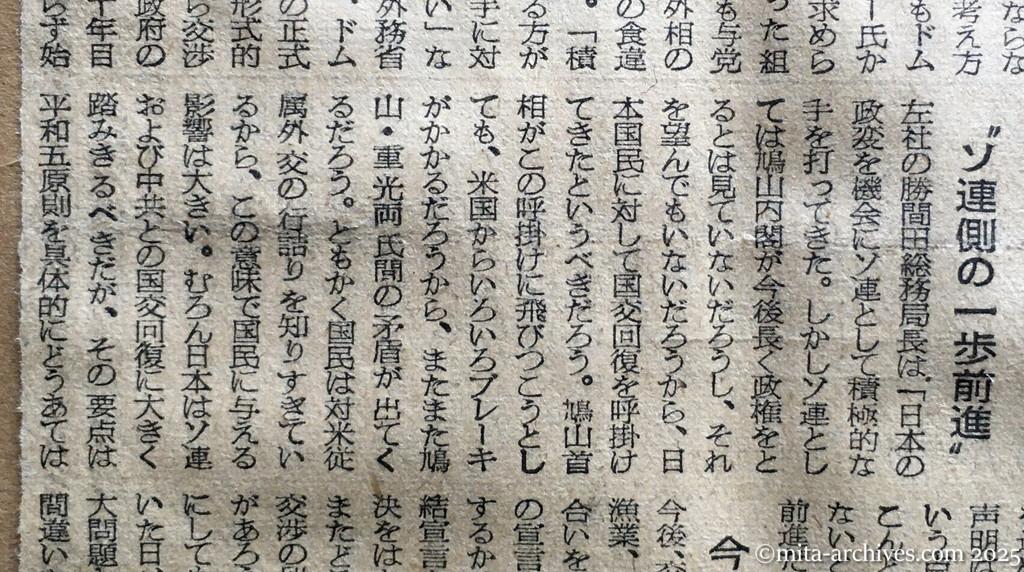 ならな
考え方
もドム
ー氏か
求めら
った組
も与党
外相の
の食違
。「積
る方が
手に対
い」な
外務省
、ドム
の正式
形式的
ら交渉
政府の
十年目
らず始
〝ソ連側の一歩前進〟
左社の勝間田総務局長は「日本の
政変を機会にソ連として積極的な
手を打ってきた。しかしソ連とし
ては鳩山内閣が今後長く政権をと
るとは見ていないだろうし、それ
を望んでもいないだろうから、日
本国民に対して国交回復を呼掛け
てきたというべきだろう。鳩山首
相がこの呼掛けに飛びつこうとし
ても、米国からいろいろブレーキ
がかかるだろうから、またまた鳩
山・重光両氏間の矛盾が出てく
るだろう。ともかく国民は対米従
属外交の行詰りを知りすぎてい
るから、この意味で国民に与える
影響は大きい。むろん日本はソ連
および中共との国交回復に大きく
踏みきるべきだが、その要点は
平和五原則を具体的にどうあては
声明は
いう日
こんど
ないと
前進だ
今
今後、交
漁業、
合いを
の宣言
するか
結宣言
決をは
またど
交渉の
があろ
にして
いた日、
大問題
間違い
©mita-archives.com 2025